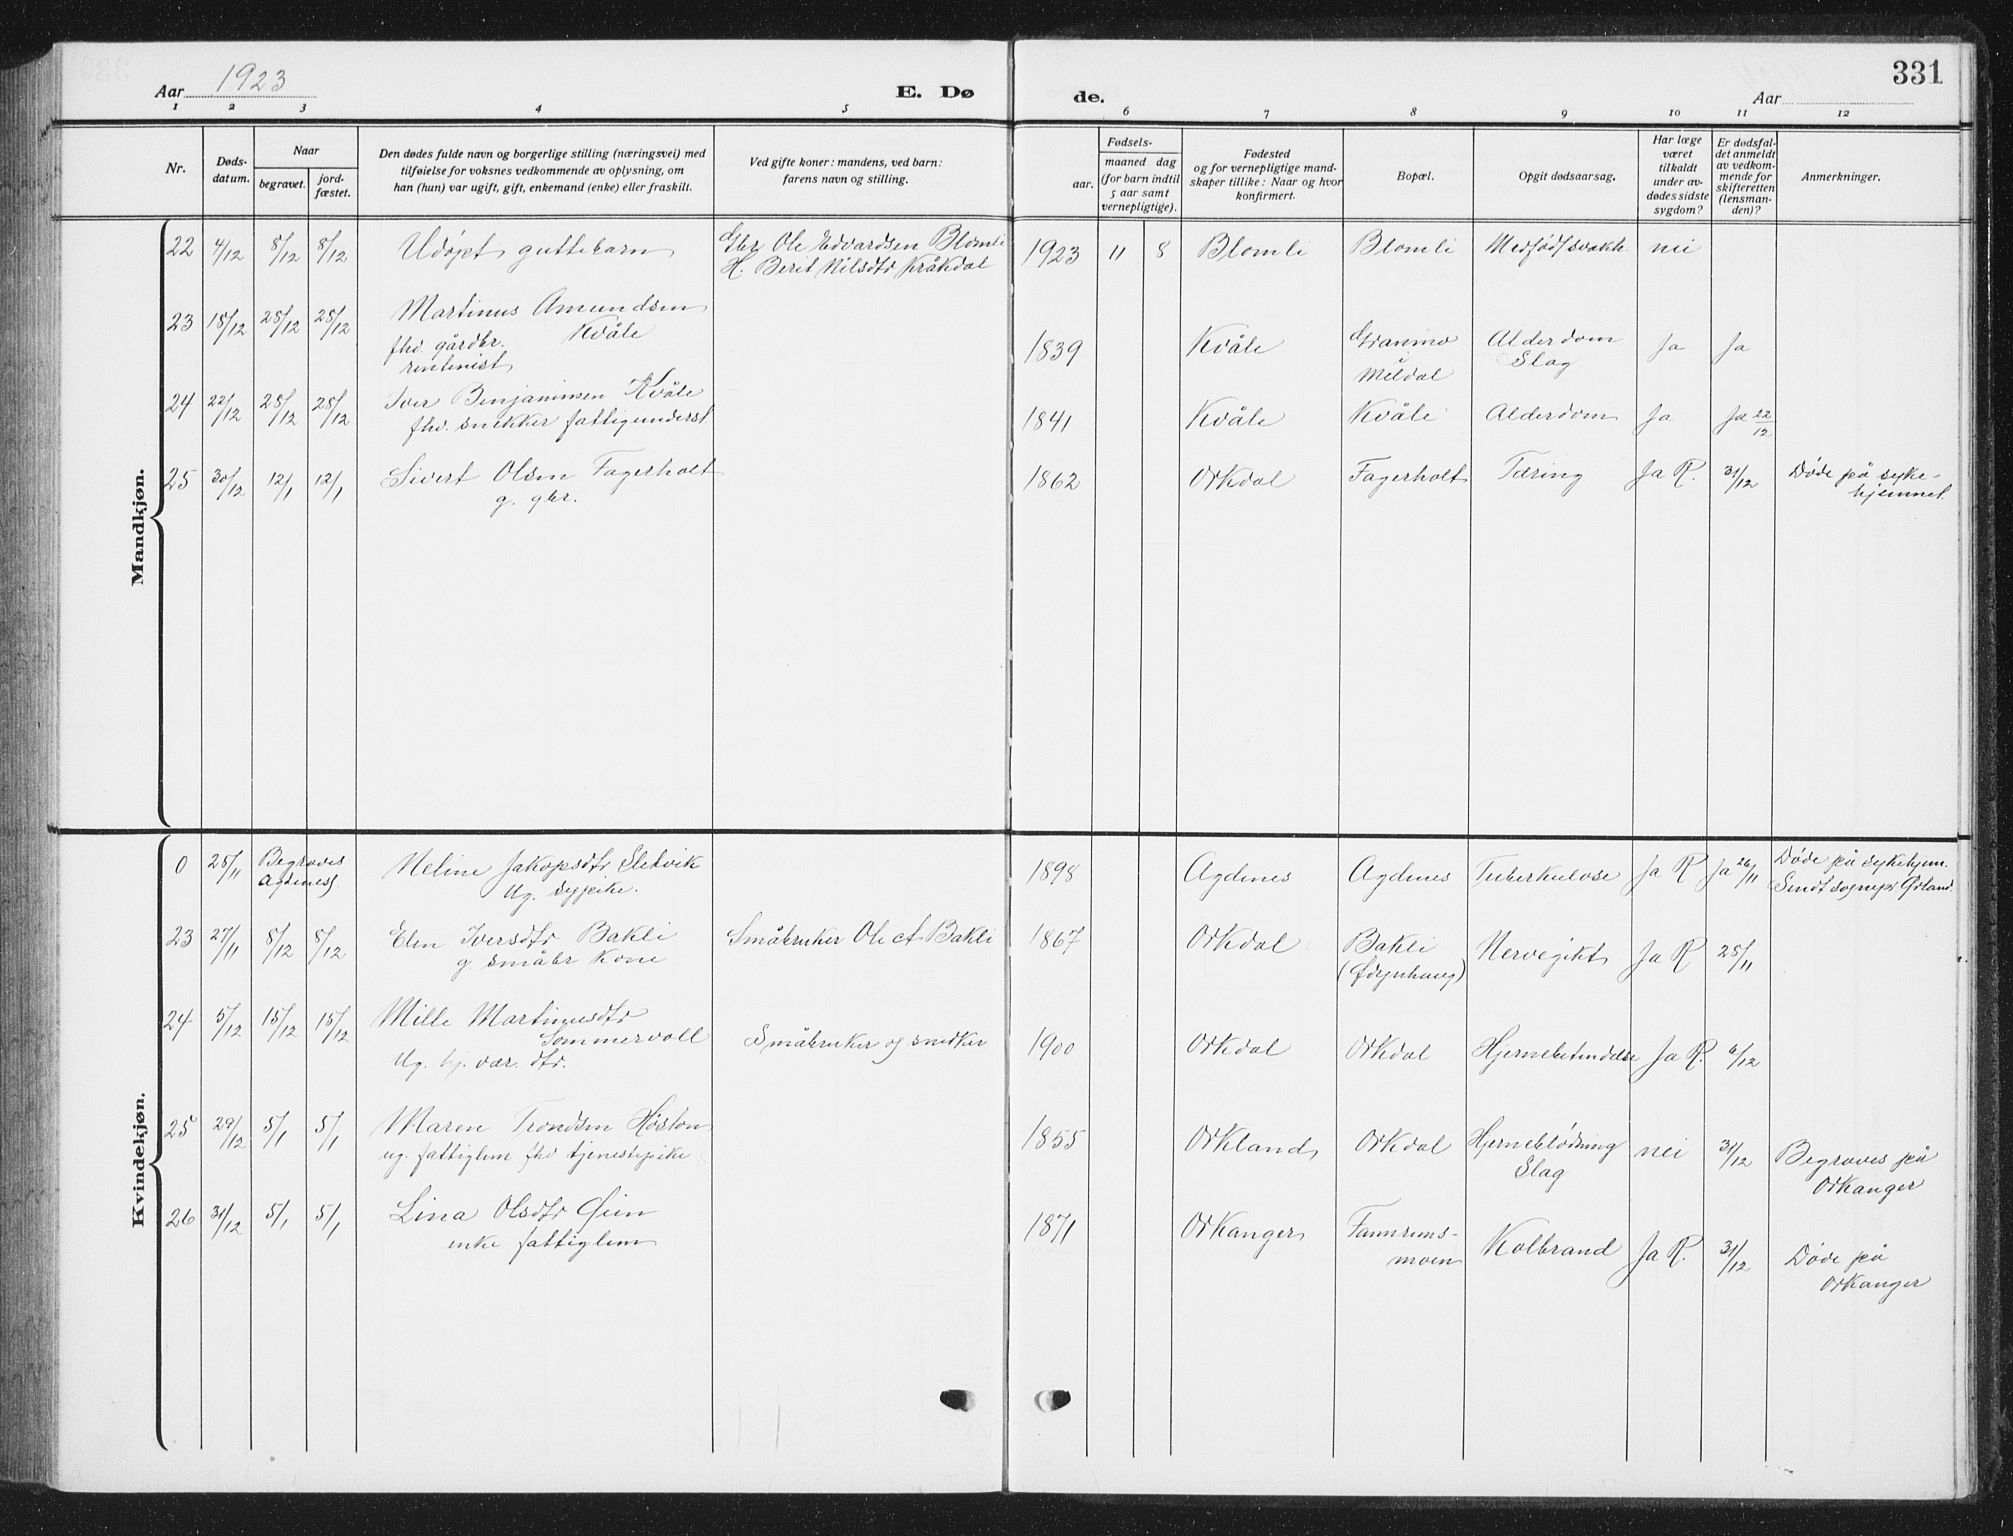 Aar 1923
E. Dø
de.
331
Aar
1 2 3 4 5 6 7 8 9 10 11 12
Nr.
Døds-
datum.
Naar
begravet.
jord-
fæstet.
Den dødes fulde navn og borgerlige stilling (næringsvei) med
tilføielse for voksnes vedkommende av oplysning, om
han (hun) var ugift, gift, enkemand (enke) eller fraskilt.
Ved gifte koner: mandens, ved barn:
farens navn og stilling.
Fødsels-
aar.
maaned dag
(for barn indtil
5 aar samt
vernepligtige).
Fødested
og for vernepligtige mand-
skaper tillike: Naar og hvor
konfirmert.
Bopæl.
Opgit dødsaarsag.
Har læge
været
tilkaldt
under av-
dødes sidste
sygdom?
Er dødsfal-
det anmeldt
av vedkom-
mende for
skifteretten
(lensman-
den)?
Anmerkninger.
Mandkjøn.
22 4/12 8/12 8/12 Udøpt guttebarn
Gbr Ole Edvardsen Blomli
H. Berit Nilsdtr Kråkdal
1923 11 8 Blomli Blomli Medfødt svakh. nei
23 18/12 28/12 28/12 Martinus Amundsen
Kvåle
fhv. gårdbr.
rentenist
1839 Kvåle Granmo
i
Meldal
Alderdom
Slag
Ja Ja
24 22/12 28/12 28/12 Iver Benjaminsen Kvåle
fhv. snekker fattigunderst.
1841 Kvåle Kvåle Alderdom Ja Ja 22/12
25 30/12 12/1 12/1 Sivert Olsen Fagerholt
g. gbr.
1862 Orkdal Fagerholt Tæring Ja R. 31/12 Døde på syke-
hjemmet.
Kvindekjøn.
0 25/11 Begraves
Agdenes
Meline Jakopsdtr. Sletvik
Ug. sypike.
1898 Agdenes Agdenes Tuberkulose Ja R Ja 26/11 Døde på sykehjem.
Sendt sognepr.
23 27/11 8/12 8/12 Elen Iversdtr Bakli
g. småbr kone
Småbruker Ole A Bakli
1867 Orkdal Bakli
Nervegikt Ja R 28/11
24 5/12 15/12 15/12 Mille Martinusdtr
Sommervoll
Ug. hj. vær. dtr.
Småbruker og snedker
1900 Orkdal Orkdal Hjernebetændelse Ja R. 6/12
25 29/12 5/1 5/1 Maren Trondsen Høston
ug. fattiglem fhv tjenestepike
1855 Orkland Orkdal Hjerneblødning
Slag
nei 31/12 Begraves på
Orkanger
26 31/12 5/1 5/1 Lina Olsdtr Øien
enke fattiglem
1871 Orkanger Fannrems-
moen
Kolbrand Ja R. 31/12 Døde på
Orkanger